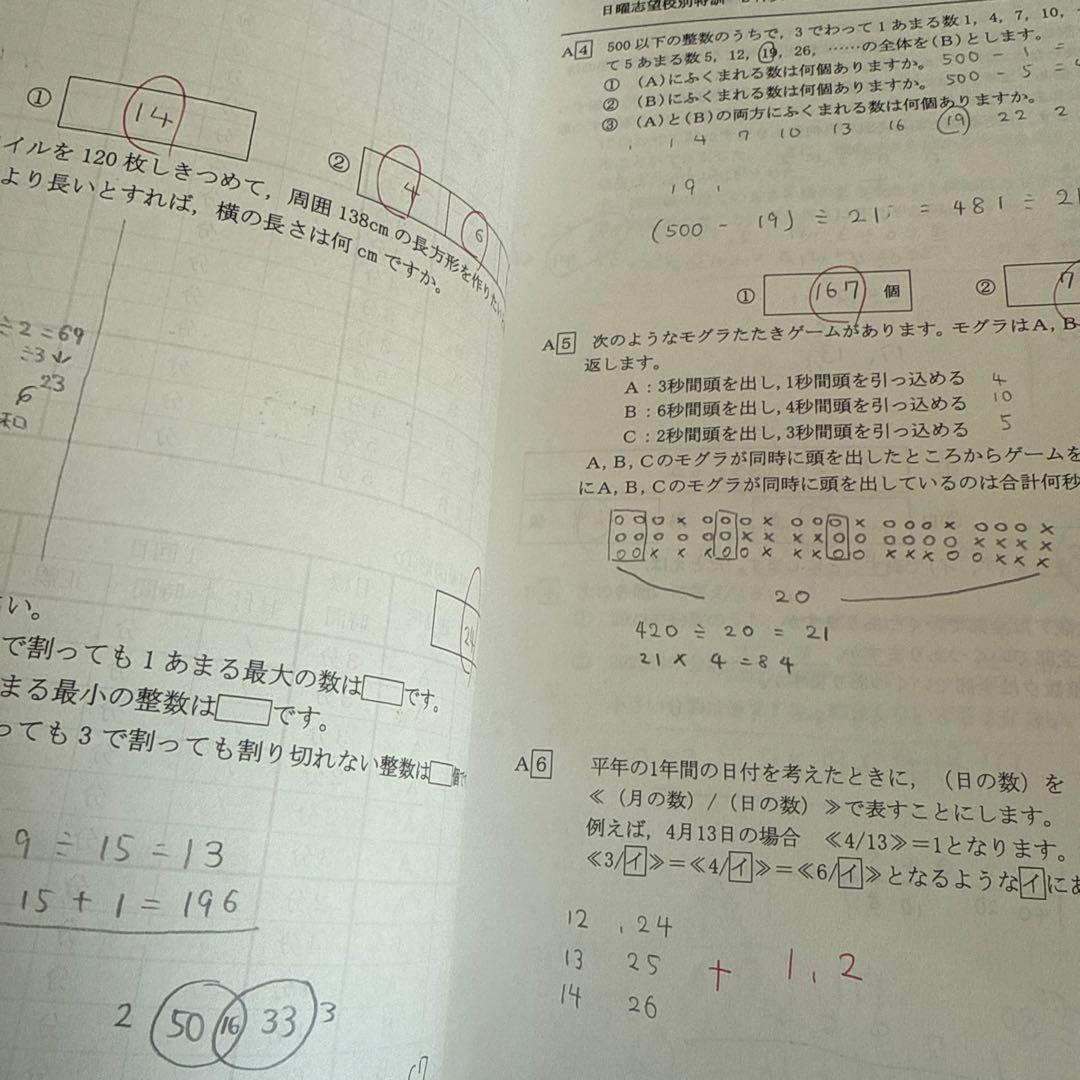 ① 14
イルを120枚しきつめて，周囲138cmの長方形を作りたい
より長いとすれば，横の長さは何cmですか。
② 4 6
÷2=69
÷3↓
23
6
和
24
い。
で割っても1あまる最大の数は□です。
まる最小の整数は□です。
っても3で割っても割り切れない整数は□個で
9÷15=13
15+1=196
2 50 16 33 3
日曜志望校別特訓
A4 500以下の整数のうちで，3でわって1あまる数1，4，7，10，
て5あまる数5，12，19，26，……の全体を(B)とします。
① (A)にふくまれる数は何個ありますか。 500-1=
② (B)にふくまれる数は何個ありますか。 500-5=
③ (A)と(B)の両方にふくまれる数は何個ありますか。
1 4 7 10 13 16 19 22 2
19
(500-19)÷21=481÷21
① 167 個 ② 7
A5 次のようなモグラたたきゲームがあります。モグラはA，B
返します。
A：3秒間頭を出し，1秒間頭を引っ込める 4
B：6秒間頭を出し，4秒間頭を引っ込める 10
C：2秒間頭を出し，3秒間頭を引っ込める 5
A，B，Cのモグラが同時に頭を出したところからゲームを
にA，B，Cのモグラが同時に頭を出しているのは合計何秒
○○○×○○○×○○○×○○○×○○○×
○○○○○○××××○○○○○○××××
○○×××○○×××○○×××○○×××
20
420÷20=21
21×4=84
A6 平年の1年間の日付を考えたときに，（日の数）を
≪（月の数）/（日の数）≫で表すことにします。
例えば，4月13日の場合 ≪4/13≫=1となります。
≪3/イ≫=≪4/イ≫=≪6/イ≫となるようなイにあ
12 , 24
13 25 + 1, 2
14 26